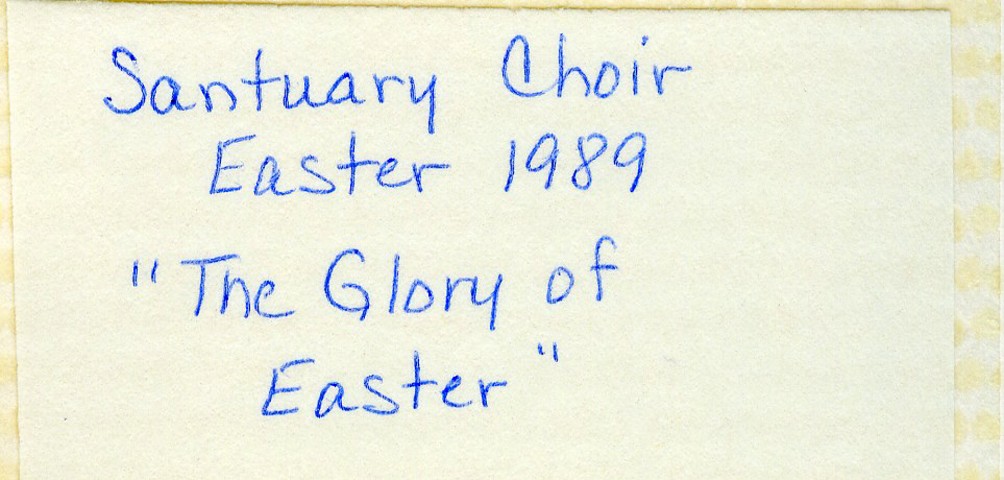 Santuary Choir
Easter 1989
"The Glory of
Easter"